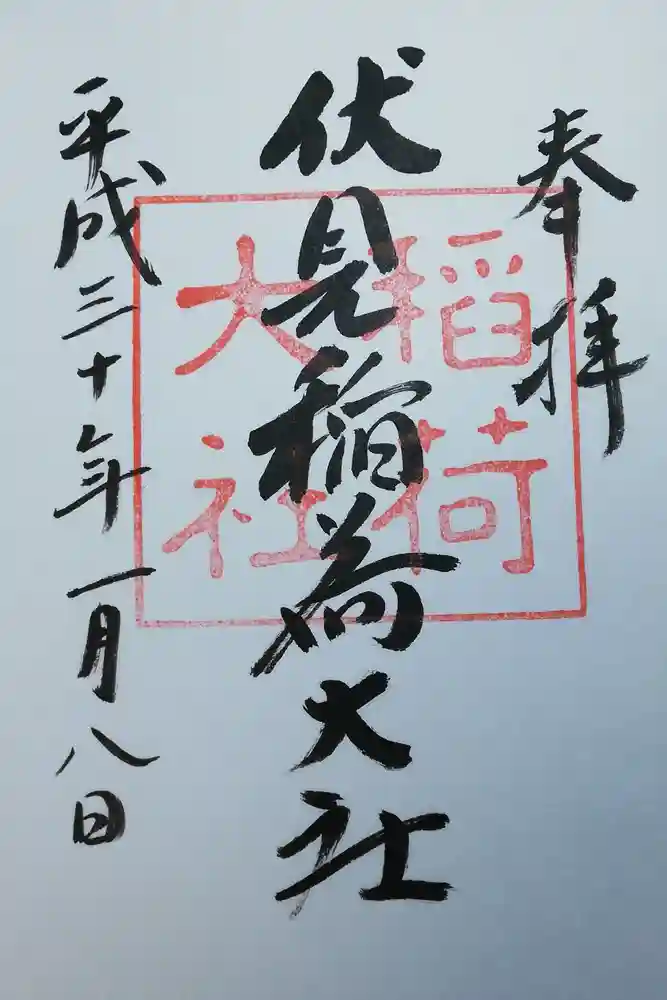 奉拝
伏見稲荷大社
稲荷
大社
平成三十年一月八日